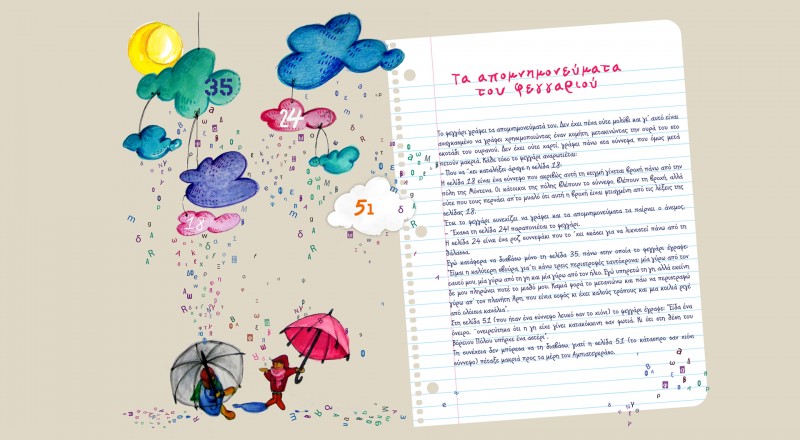 35
24
18
51
Τα απομνημονεύματα
του φεγγαριού
Το φεγγάρι γράφει τα απομνημονεύματά του. Δεν έχει πένα ούτε μολύβι και γι' αυτό είναι
αναγκασμένο να γράφει χρησιμοποιώντας έναν κομήτη, μετακινώντας την ουρά του στο
σκοτάδι του ουρανού. Δεν έχει ούτε χαρτί, γράφει πάνω στα σύννεφα, που όμως μετά
πετούν μακριά. Κάθε τόσο το φεγγάρι αναρωτιέται:
- Πού να 'χει καταλήξει άραγε η σελίδα 18;
Η σελίδα 18 είναι ένα σύννεφο που ακριβώς αυτή τη στιγμή γίνεται βροχή πάνω από την
πόλη της Μόντενα. Οι κάτοικοι της πόλης βλέπουν το σύννεφο, βλέπουν τη βροχή, αλλά
ούτε που τους περνάει απ' το μυαλό ότι αυτή η βροχή είναι φτιαγμένη από τις λέξεις της
σελίδας 18.
Έτσι το φεγγάρι συνεχίζει να γράφει και τα απομνημονεύματα τα παίρνει ο άνεμος.
- Έχασα τη σελίδα 24! παραπονιέται το φεγγάρι.
Η σελίδα 24 είναι ένα ροζ συννεφάκι που το 'χει σκάσει για να λικνιστεί πάνω από τη
θάλασσα.
Εγώ κατάφερα να διαβάσω μόνο τη σελίδα 35, πάνω στην οποία το φεγγάρι έγραφε:
"Είμαι η καλύτερη σβούρα, γιατί κάνω τρεις περιστροφές ταυτόχρονα: μία γύρω από τον
εαυτό μου, μία γύρω από τη γη και μία γύρω από τον ήλιο. Εγώ υπηρετώ τη γη, αλλά εκείνη
δε μου πληρώνει ποτέ το μισθό μου. Καμιά φορά το μετανιώνω και πάω να περιστραφώ
γύρω απ' τον πλανήτη Άρη, που είναι σοφός κι έχει καλούς τρόπους και μια κοιλιά ριγέ
από ολόισια κανάλια".
Στη σελίδα 51 (που ήταν ένα σύννεφο λευκό σαν το χιόνι) το φεγγάρι έγραφε: "Είδα ένα
όνειρο. Ονειρεύτηκα ότι η γη είχε γίνει κατακόκκινη σαν φωτιά. Κι ότι στη θέση του
βόρειου Πόλου υπήρχε ένα αστέρι".
Τη συνέχεια δεν μπόρεσα να τη διαβάσω, γιατί η σελίδα 51 (το κάτασπρο σαν χιόνι
σύννεφο) πέταξε μακριά προς τα μέρη του